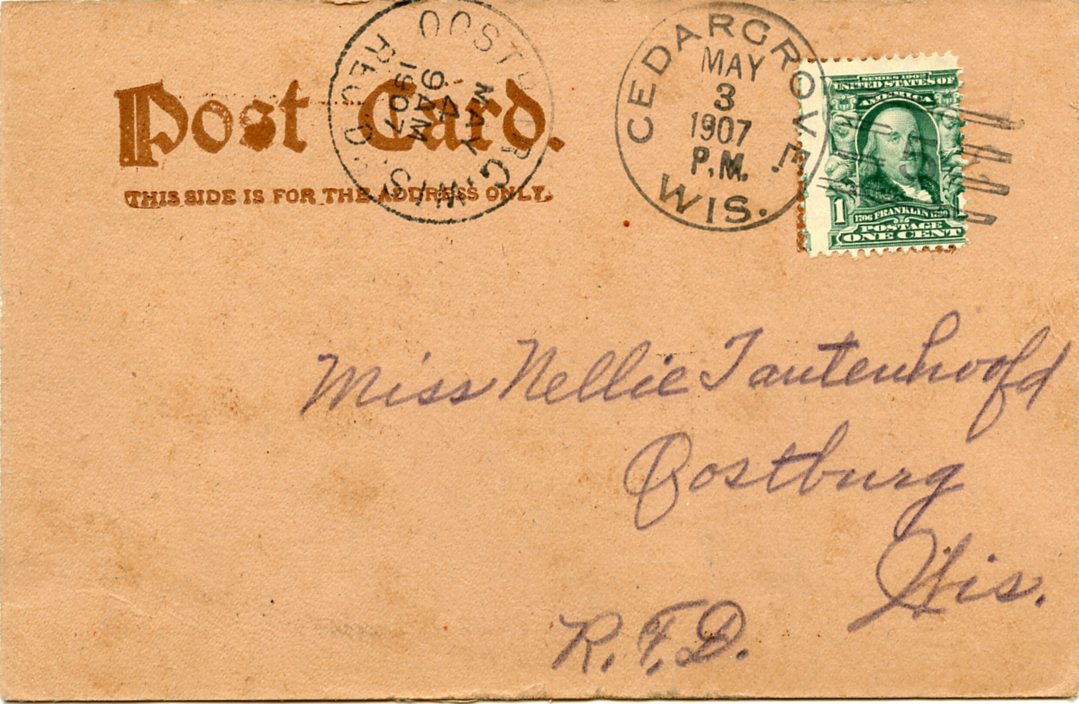 Post Card.
THIS SIDE IS FOR THE ADDRESS ONLY.
OOSTBURG. WIS.
MAY
4
9 AM
1907
REC'D
CEDARGROVE.
MAY
3
1907
P.M.
WIS.
SERIES 1902
UNITED STATES OF
AMERICA
1
1706 FRANKLIN 1790
POSTAGE
ONE CENT
Miss Nellie Tautenhoofd
Oostburg
Wis.
R.F.D.